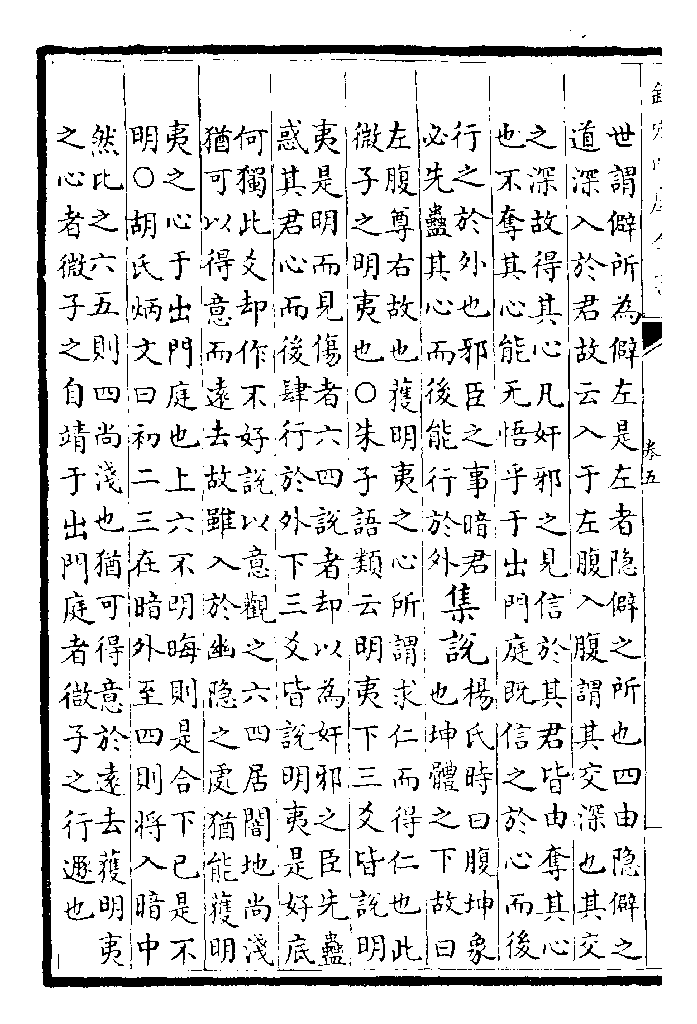 卷五
世謂僻所為僻左是左者隐僻之所也四由隐僻之
道深入於君故云入于左腹入腹謂其交深也其交
之深故得其心凡奸邪之見信於其君皆由奪其心
也不奪其心能无悟乎于出門庭既信之於心而後
行之於外也邪臣之事暗君
必先蠱其心而後能行於外
集說
楊氏時曰腹坤象
也坤體之下故曰
左腹尊右故也獲明夷之心所謂求仁而得仁也此
微子之明夷也○朱子語類云明夷下三爻皆說明
夷是明而見傷者六四說者却以為奸邪之臣先蠱
惑其君心而後肆行於外下三爻皆說明夷是好底
何獨此爻却作不好說以意觀之六四居闇地尚淺
猶可以得意而遠去故雖入於幽隐之處猶能獲明
夷之心于出門庭也上六不明晦則是合下已是不
明○胡氏炳文曰初二三在暗外至四則將入暗中
然比之六五則四尚淺也猶可得意於遠去獲明夷
之心者微子之自靖于出門庭者微子之行遯也